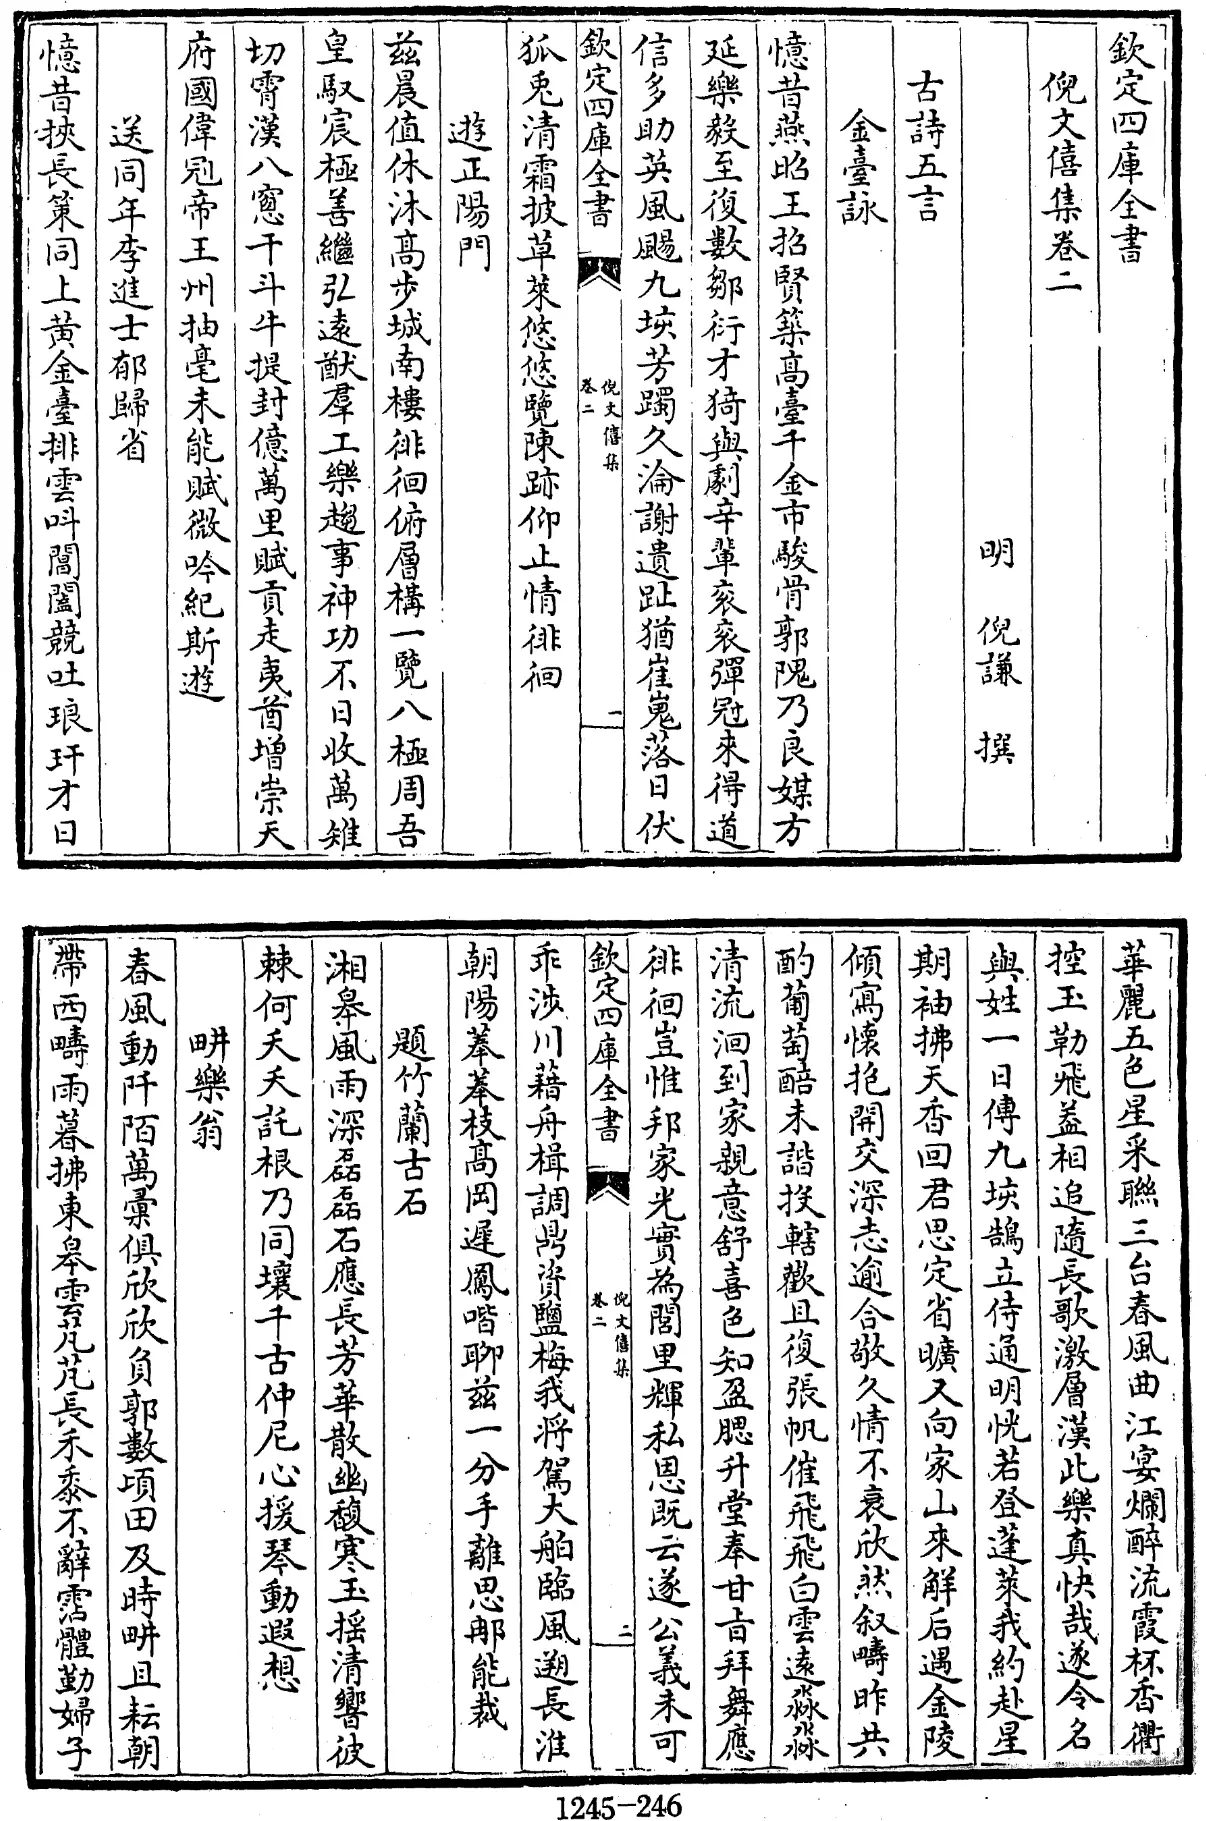 欽定四庫全書
倪文僖集卷二
明 倪謙 撰
古詩五言
金臺詠
憶昔燕昭王招賢築高臺千金市駿骨郭隗乃良媒方
延樂毅至復數鄒衍才猗與劇辛輩衮衮彈冠來得道
信多助英風颺九垓芳躅久淪謝遺趾猶崔嵬落日伏
欽定四庫全書
倪文僖集
卷二
一
狐兎清霜披草萊悠悠覽陳跡仰止情徘徊
遊正陽門
兹晨值休沐高步城南樓徘徊俯層構一覽八極周吾
皇馭宸極善繼弘遠猷羣工樂趨事神功不日收萬雉
切霄漢八窻干斗牛提封億萬里賦貢走夷酋增崇天
府國偉冠帝王州抽毫未能賦微吟紀斯遊
送同年李進士郁歸省
憶昔挾長策同上黄金臺排雲呌閶闔競吐琅玕才日
華麗五色星采聯三台春風曲江宴爛醉流霞杯香衢
控玉勒飛葢相追隨長歌激層漢此樂真快哉遂令名
與姓一日傳九垓鵠立侍通明恍若登蓬萊我約赴星
期袖拂天香回君思定省曠又向家山來解后遇金陵
傾寫懷抱開交深志逾合敬久情不衰欣然叙疇昨共
酌葡萄醅未諧投轄歡且復張帆催飛飛白雲遠淼淼
清流洄到家親意舒喜色知盈腮升堂奉甘旨拜舞應
徘徊豈惟邦家光實為閭里輝私恩既云遂公義未可
欽定四庫全書
倪文僖集
卷二
二
乖涉川藉舟楫調鼎資鹽梅我將駕大舶臨風遡長淮
朝陽菶菶枝高岡遲鳳喈聊兹一分手離思那能裁
題竹蘭古石
湘皋風雨深磊磊石應長芳華散幽馥寒玉摇清響彼
棘何夭夭託根乃同壤千古仲尼心援琴動遐想
畊樂翁
春風動阡陌萬彚俱欣欣負郭數頃田及時畊且耘朝
帶西疇雨暮拂東皋雲芃芃長禾黍不辭霑體勤婦子
1245-246